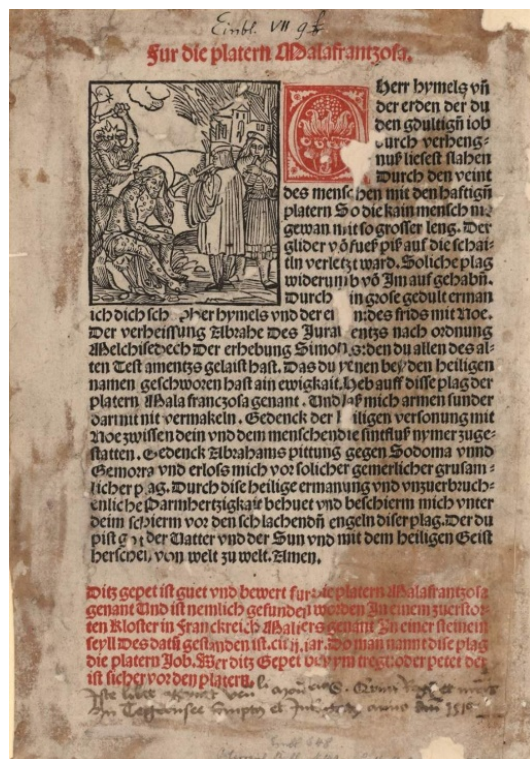 Einbl. VII 9
Fur die platern Malafrantzosa.
Herr hymels vñ
der erden der du
den gdultigñ iob
durch verheng-
nuß liesest slahen
Durch den veint
des menschen mit den haftigñ
platern So die kain mensch nie
gewan mit so grosser leng. Der
glider võ fueß piß auf die schai-
tln verletzt ward. Soliche plag
widerumb võ Im auf gehabñ.
Durch grose gedult erman
ich dich hymels vnd der mit Noe.
Der verheissung Abrahe Des nach ordnung
Melchisedech Der erhebung den du allen des al-
ten Testamentzs gelaist hast. Das du yenen beyden heiligen
namen geschworen hast ain ewigkait. Heb auff disse plag der
platern Mala franczosa genant. Vnd laß mich armen sunder
darmit nit vermakeln. Gedenck der versonung mit
Noe zwissen dein vnd dem menschen die sintfluß nymer zuge-
statten. Gedenck Abrahams pittung gegen Sodoma vnnd
Gemorra vnd erloss mich vor solicher gemerlicher grusam-
licher plag. Durch dise heilige ermanung vnd vnzuerbruch-
enliche Parmhertzigkait behuet vnd beschierm mich vnter
deim schierm vor den schlachendñ engeln diser plag. Der du
pist got der Vatter vnd der Sun vnd mit dem heiligen Geist
herschest, von welt zu welt. Amen.
Ditz gepet ist guet vnd bewert fur die platern Malafrantzosa
genant Vnd ist nemlich gefunden worden In einem zuerstor-
ten Kloster in Franckreich Maliers genant In einer steinem
seyll Des datũ gestanden ist. jar. Do man nannt dise plag
die platern Job. Wer ditz Gepet bey ym tregt oder petet der
ist sicher vor den platern.
Iste liber
In Tegernsee anno